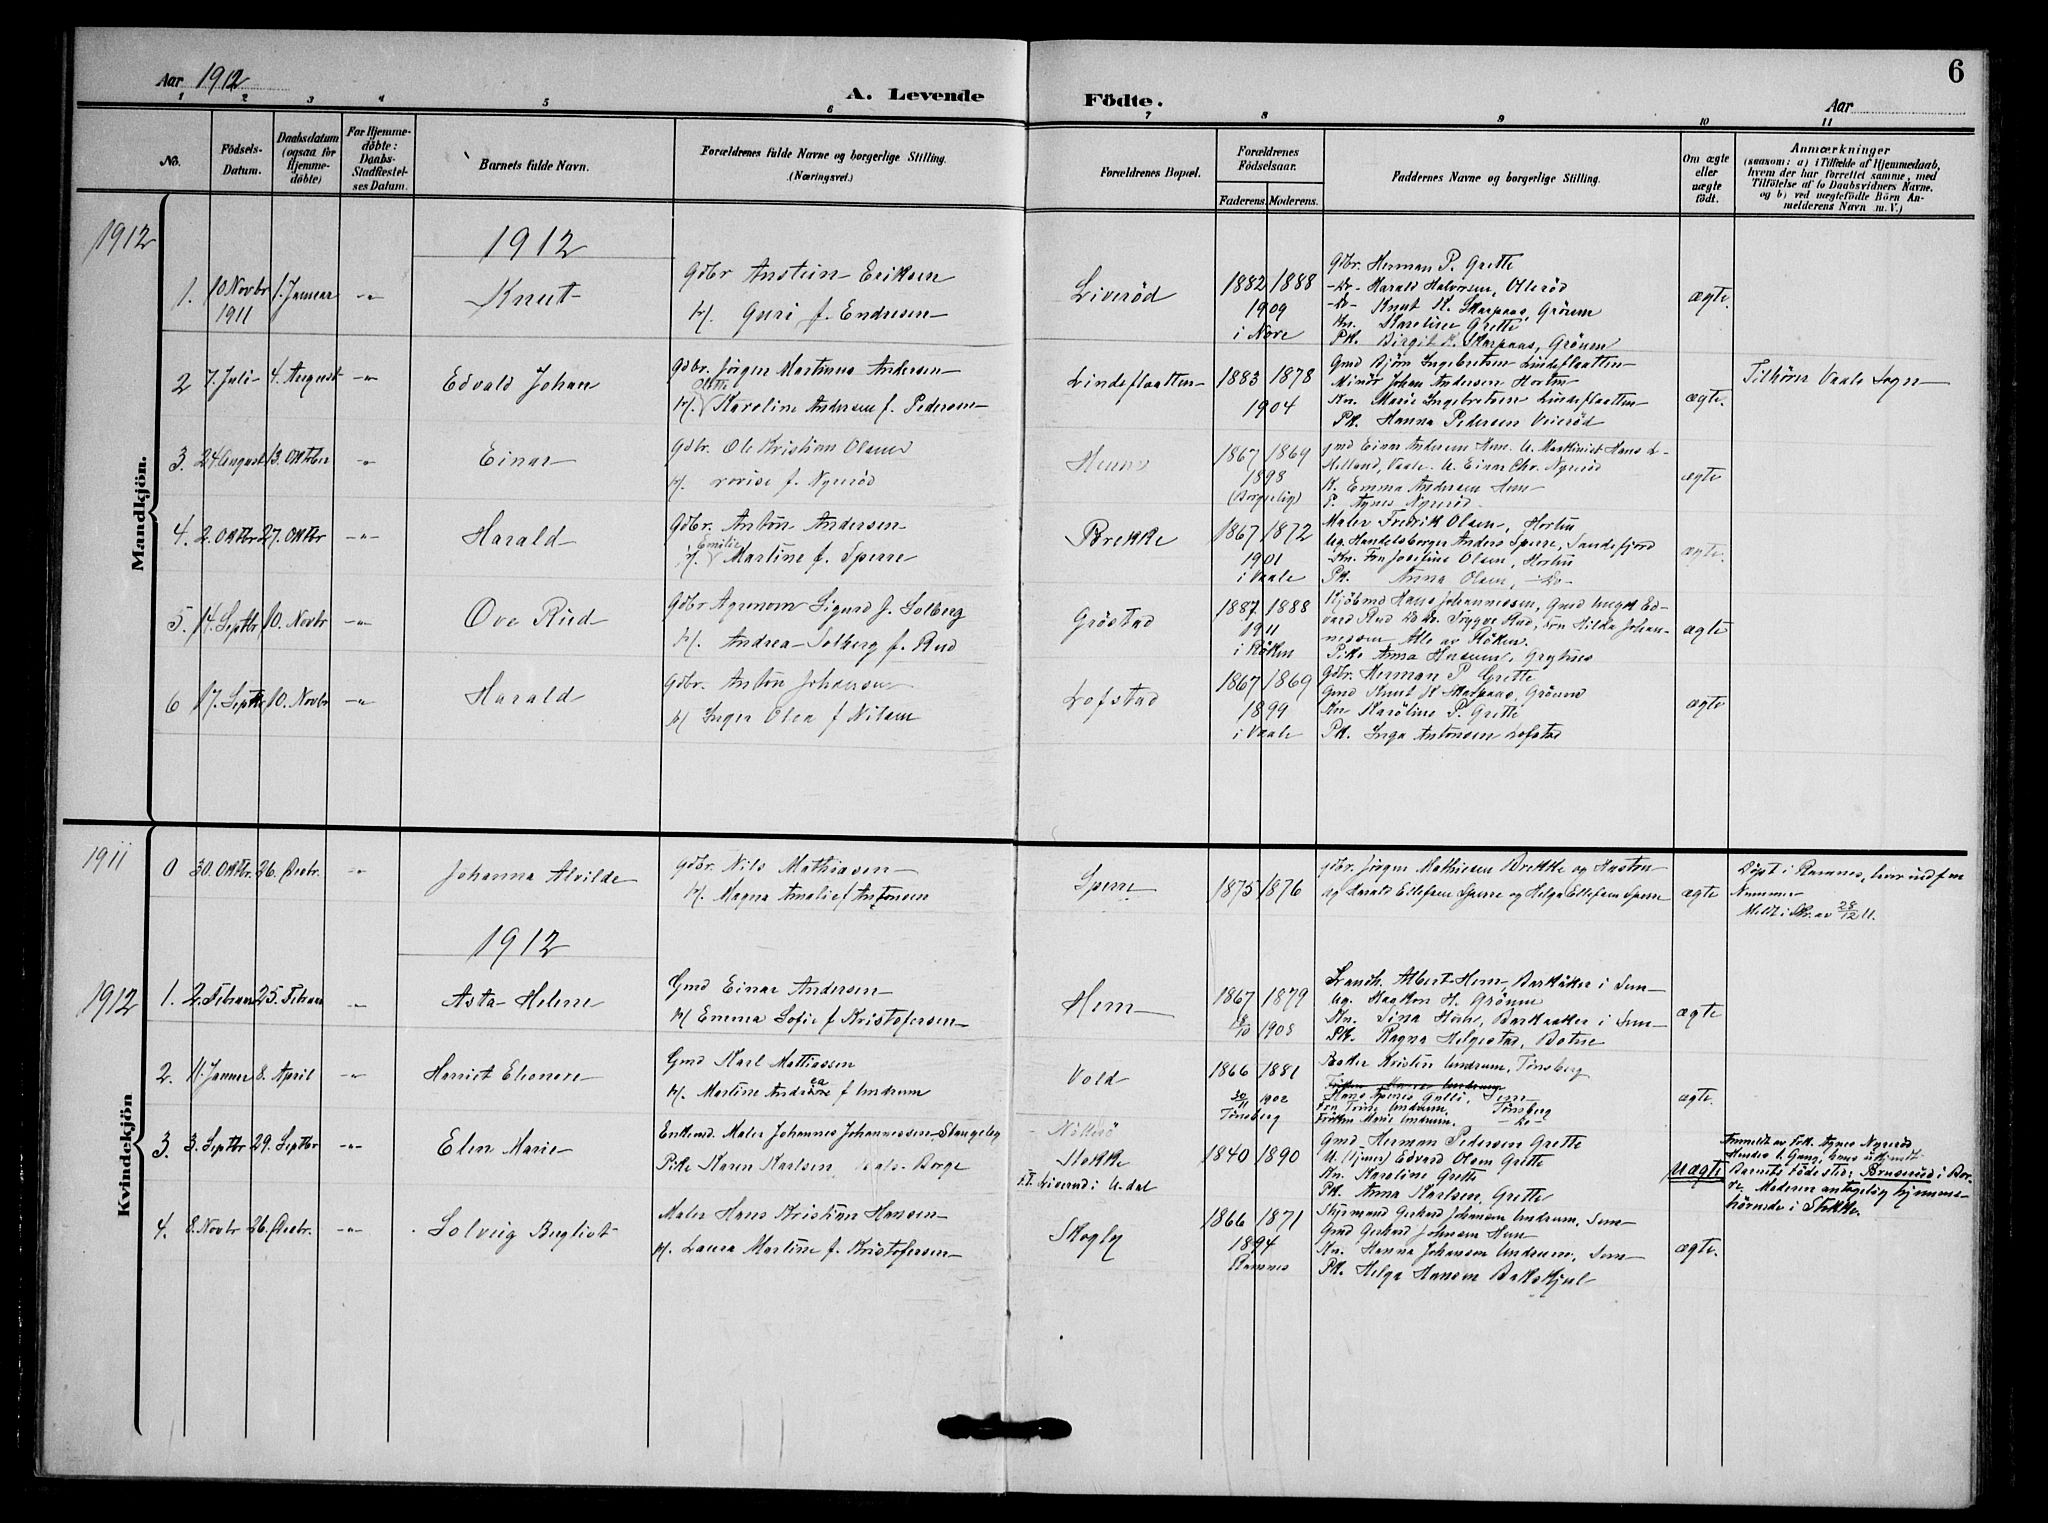 Aar 1912
A. Levende
Födte.
Aar
6
1 2 3 4 5 6 7 8 9 10 11
No.
Födsels-
Datum.
Daabsdatum
(ogsaa for
Hjemme-
döbte)
For Hjemme-
döbte:
Daabs-
Stadfæstel-
ses Datum.
Barnets fulde Navn.
Forældrenes fulde Navne og borgerlige Stilling.
(Næringsvei.)
Forældrenes Bopæl.
Forældrenes
Födselsaar.
Faderens. Moderens.
Faddernes Navne og borgerlige Stilling.
Om ægte
eller
uægte
födt.
Anmærkninger
(saasom: a) i Tilfælde af Hjemmedaab,
hvem der har forrettet samme, med
Tilföielse af to Daabsvidners Navne,
og b) ved uægtefödte Börn An-
melderens Navn m. V.)
Mandkjön.
1912
1912
1. 10 Novbr 1. Januar -"- Knut
1911
Gdbr Anstein Eriksen
H/. Guri f. Endresen
Liveröd
1882 1888
1909
i Nore
Gdbr. Herman P. Grette
-Do- Harald Halvorsen, Olleröd
-Do- Knut K. Skarpaas, Gröum
Kn. Karoline Grette
Pk. Birgit K. Skarpaas, Gröum
ægte.
2 7. Juli 4. August -"- Edvald Johan
Gdbr. Jörgen Martinus Andersen
Olette
H/. Karoline Andersen f. Pedersen
Lindeflaatten
1883 1878
1904
Gmd Björn Ingebretsen Lindeflaatten
Minör Johan Andersen Horten
Kn. Marie Ingebretsen Lindeflaatten
Pk. Hanna Pedersen Veieröd
ægte.
Tilhörer Vaale Sogn
3. 24. August 13. Oktober " Einar
Gdbr. Ole Kristian Olsen
H/. Lovise f. Nyeröd
Hem
1867 1869
1898
(Borgerlig)
Gmd Einar Andersen Hem. U. Maskinist Hans L.
Helland, Vaale. U. Einar Chr. Nyeröd
K. Emma Andersen Hem
P. Agnes Nyeröd.
ægte
4. 2. Oktbr 27. Oktbr -"- Harald
Gdbr. Anton Andersen
Emilie
H/. Martine f. Sperre
Brekke
1867 1872
1901
i Vaale
Maler Fredrik Olsen, Horten
Ug. Handelsborger Anders Sperre, Sandefjord
Kn. Fru Josefine Olsen, Horten
Pk. Anna Olsen, -Do-
ægte.
5. 14. Septbr 10. Novbr -"- Ove Rud
Gdbr Agronom Sigurd J. Solberg
H/. Andrea Solberg f. Rud
Gröstad
1887 1888
1911
i Röken
Kjöbmd Hans Johannessen, Gmd Ungk Ed-
vard Rud Do Do. Trygve Rud, Frn Hilda Johan-
nessen Alle av Röken.
Pike Anna Hansen,
ægte
6 17. Septbr 10. Novbr -"- Harald
Gdbr. Anton Johansen
H/ Inger Olea f Nilsen
Lofstad
1867 1869
1899
i Vaale
Gdbr. Herman P Grette
Gmd Knut K Skarpaas, Gröum
Kn Karoline P. Grette
Pk. Inga Antonsen Lofstad
ægte
Kvindekjön
1911
0 30. Oktbr. 26. Decbr. -"- Johanna Alvilde
Gdbr. Nils Mathiasen
H/. Magna Amalie f Antonsen
Sperre
1875 1876
Gdbr. Jörgen Mathisen Brekke og Hustru
og Harald Ellefsen Sperre og Helga Ellefsen Sperre
ægte
Döpt i Ramnes, hvor indf. m
Nummer
Meldt i Skr. av 28/12 11.
1912
1912
1. 2. Februar 25. Februar " Asta Helene
Gmd Einar Andersen
H/ Emma Sofie f Kristofersen
Hem
1867 1879
8/10 1905
Albert Hem, Barkaaker i Sem
Ug. Haakon H. Gröum
Kn. Sina Hem, Barkaaker i Sem
Pk. Ragna Helgestad, Botne
ægte
2. 11. Januar 8. April -"- Harriet Eleonore
Gmd Karl Mattiassen
H/. Martine Andrea f Undrum
Vold
1866 1881
30/11 1902
Tönsberg
Baker Kristen Undrum, Tönsberg
Hans Sem
Fru Trine Undrum, Tönsberg
Fröken Marie Undrum, -Do-
ægte.
3. 3. Septbr 29. Septbr -"- Elen Marie
Enkemd. Maler Johannes Johannessen Stangeby
Pike Karen Karlsen Borge
Nötterö
Stokke
p.t. Liverud i Undal
1840 1890
Gmd Herman Pedersen Grette
U. (tjener) Edvard Olsen Grette
Kn. Karoline Grette
Pk. Anna Karlsen, Grette
uægte
Anmeldt av Frk. Agnes Nyeröd
Hendes 1. Gang, hans ubekjendt
Barnets födested: Bruseröd i Bor-
re. Moderen antagelig hjemme-
hörende i Stokke.
4. 8. Novbr 26. Decbr. -"- Solveig Bergliot
Maler Hans Kristian Hansen
H/. Laura Martine f. Kristofersen
Skogly
1866 1871
1894
Ramnes
Skjermand Gerhard Johansen Undrum, Sem
Gmd Gerhard Johnsen Hem
Kn. Hanna Johansen Undrum, Sem
Pk. Helga Hansen Bakskjul
ægte.